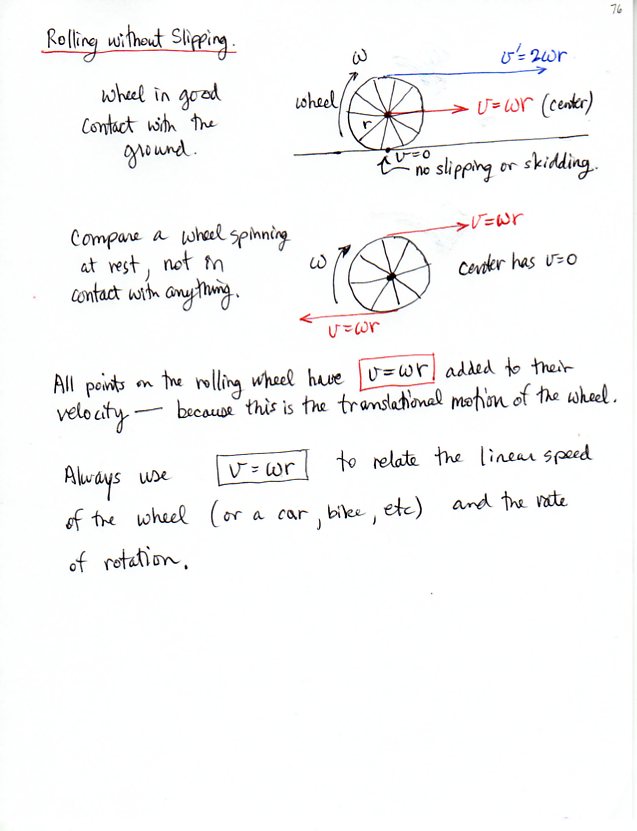 76
Rolling without Slipping.
Wheel in good
Contact with the
ground.
ω
v' = 2ωr
wheel
r
v = ωr (center)
v=0
no slipping or skidding.
Compare a wheel spinning
at rest, not in
contact with anything.
ω
v=ωr
center has v=0
v=ωr
All points on the rolling wheel have v=ωr added to their
velocity — because this is the translational motion of the wheel.
Always use v=ωr to relate the linear speed
of the wheel (or a car, bike, etc) and the rate
of rotation.